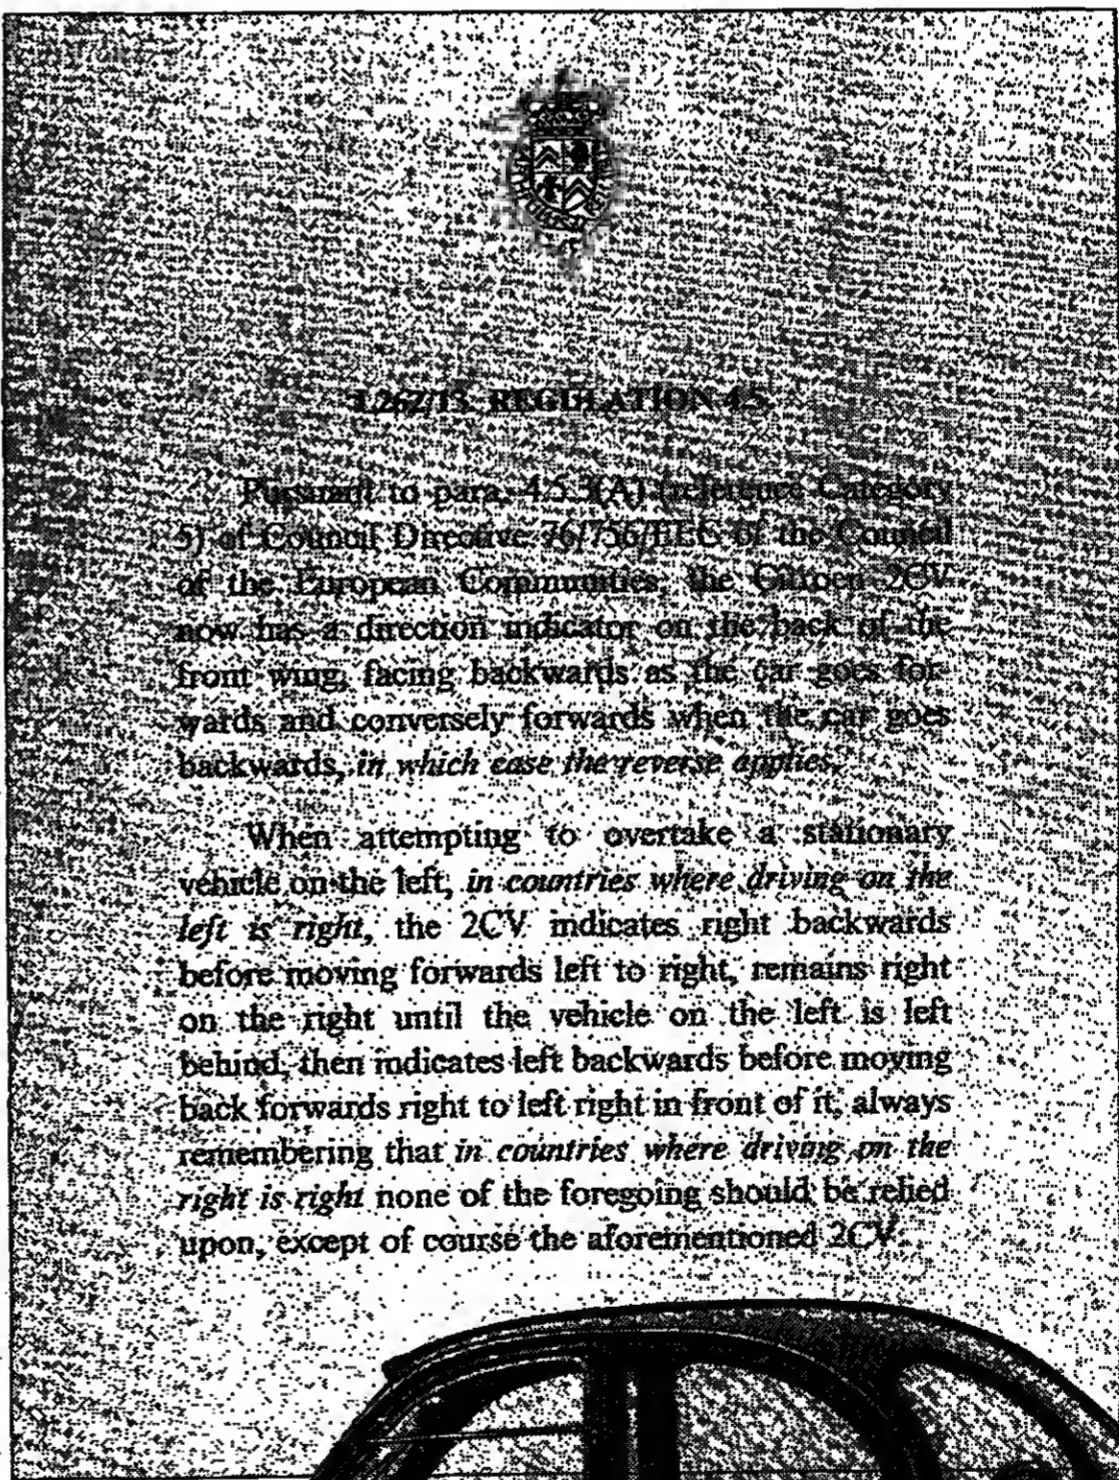 L262/13. REGULATION 4.5.
Pursuant to para. 4.5.3(A) (reference Category
5) of Council Directive 76/756/EEC of the Council
of the European Communities, the Citroen 2CV
now has a direction indicator on the back of the
front wing, facing backwards as the car goes for-
wards and conversely forwards when the car goes
backwards, in which case the reverse applies.
When attempting to overtake a stationary
vehicle on the left, in countries where driving on the
left is right, the 2CV indicates right backwards
before moving forwards left to right, remains right
on the right until the vehicle on the left is left
behind, then indicates left backwards before moving
back forwards right to left right in front of it, always
remembering that in countries where driving on the
right is right none of the foregoing should be relied
upon, except of course the aforementioned 2CV.